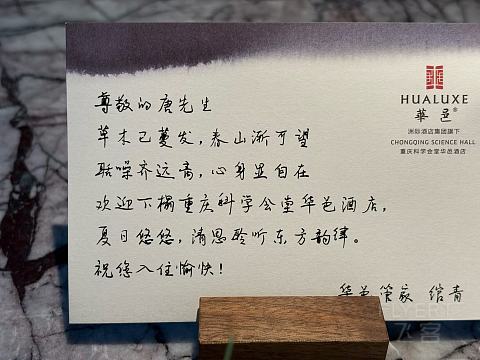 尊敬的唐先生
草木已蔓发，春山渐可望
聒噪齐远斋，心身显自在
欢迎下榻重庆科学会堂华邑酒店，
夏日悠悠，清思聆听东方韵律。
祝您入住愉快！
华邑管家 绾青
HUALUXE
華邑®
洲际酒店集团旗下
CHONGQING SCIENCE HALL
重庆科学会堂华邑酒店
FLYERT
飞客